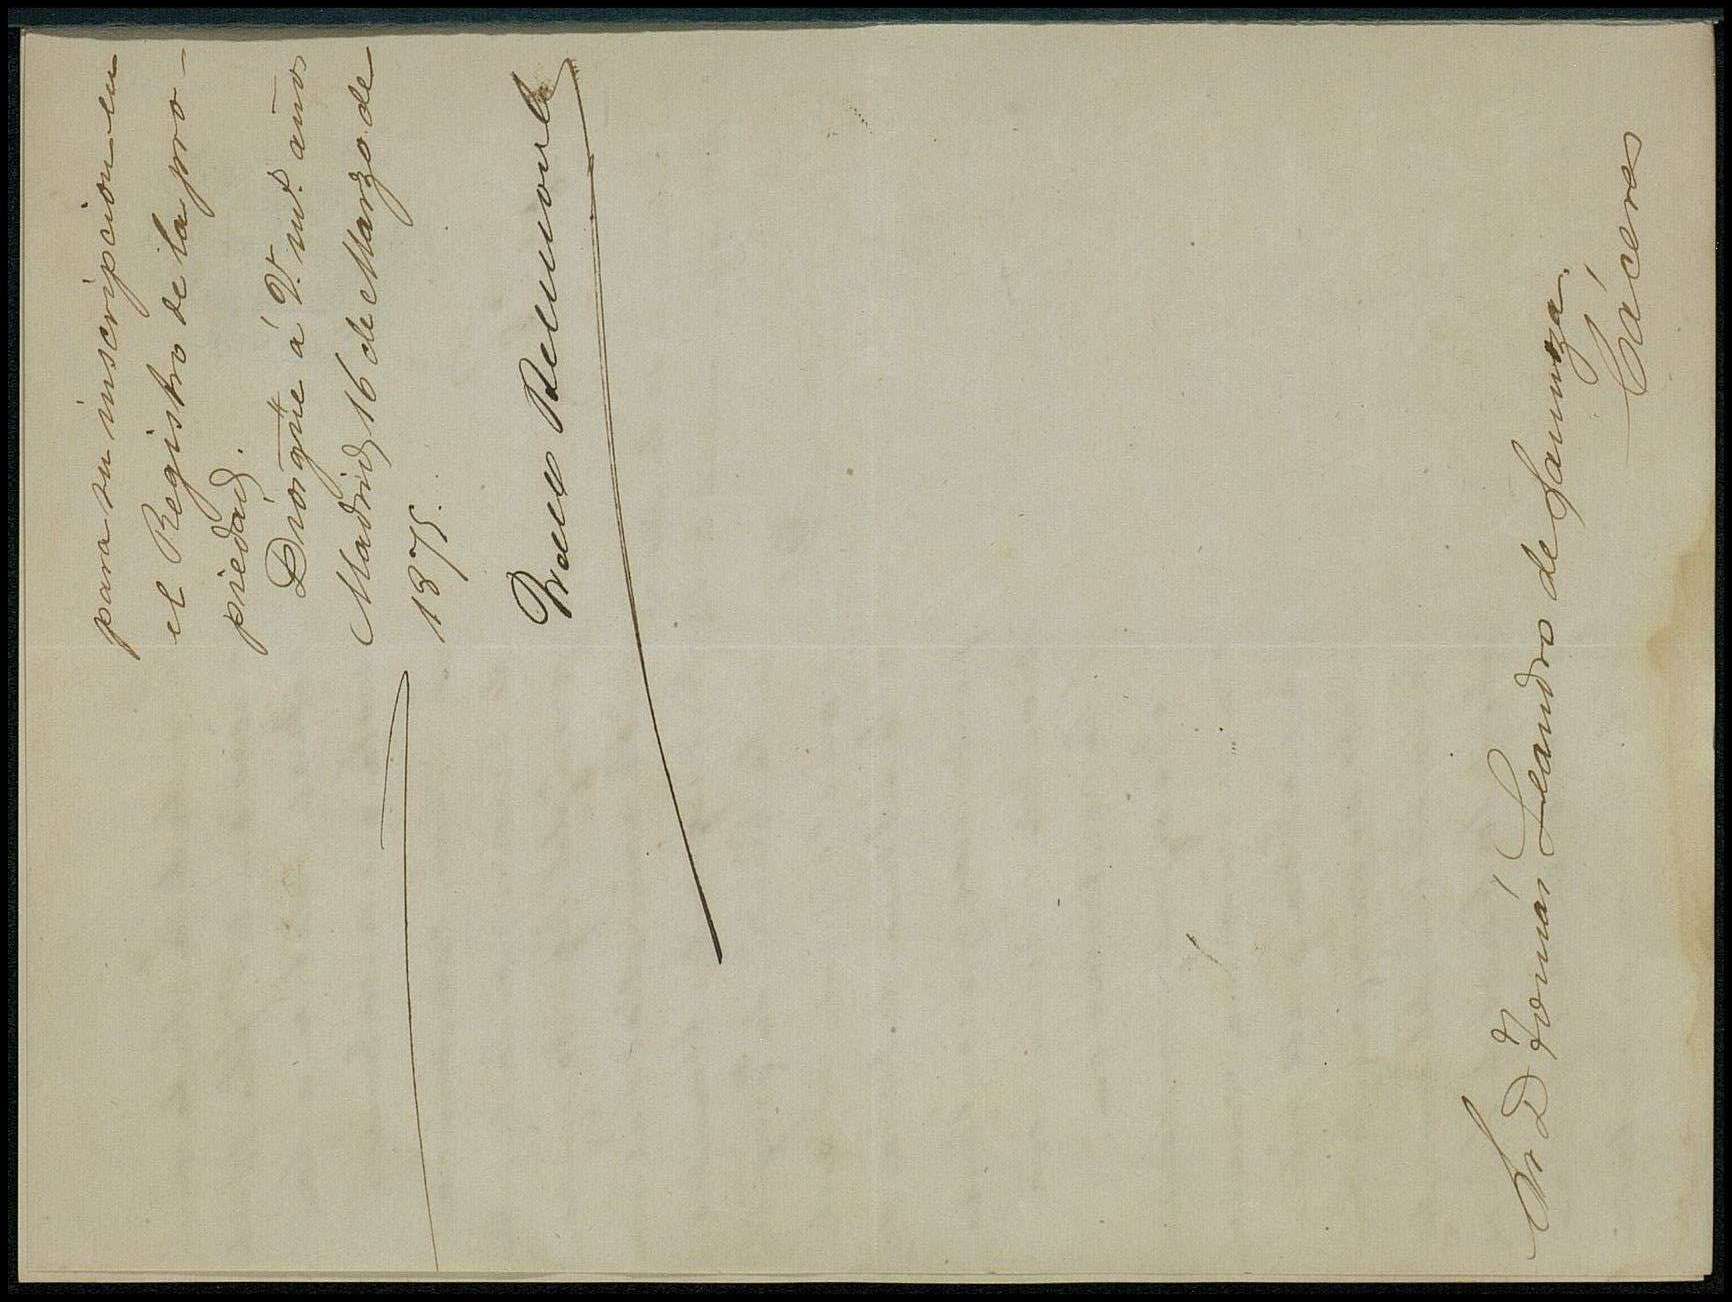 para su inscripcion en
el Registro de la pro-
piedad.
Dios gũe á V. m.ˢ años
Madrid 16 de Marzo de
1875.
Belmonte
Sr D Tomás Leandro de
Cáceres